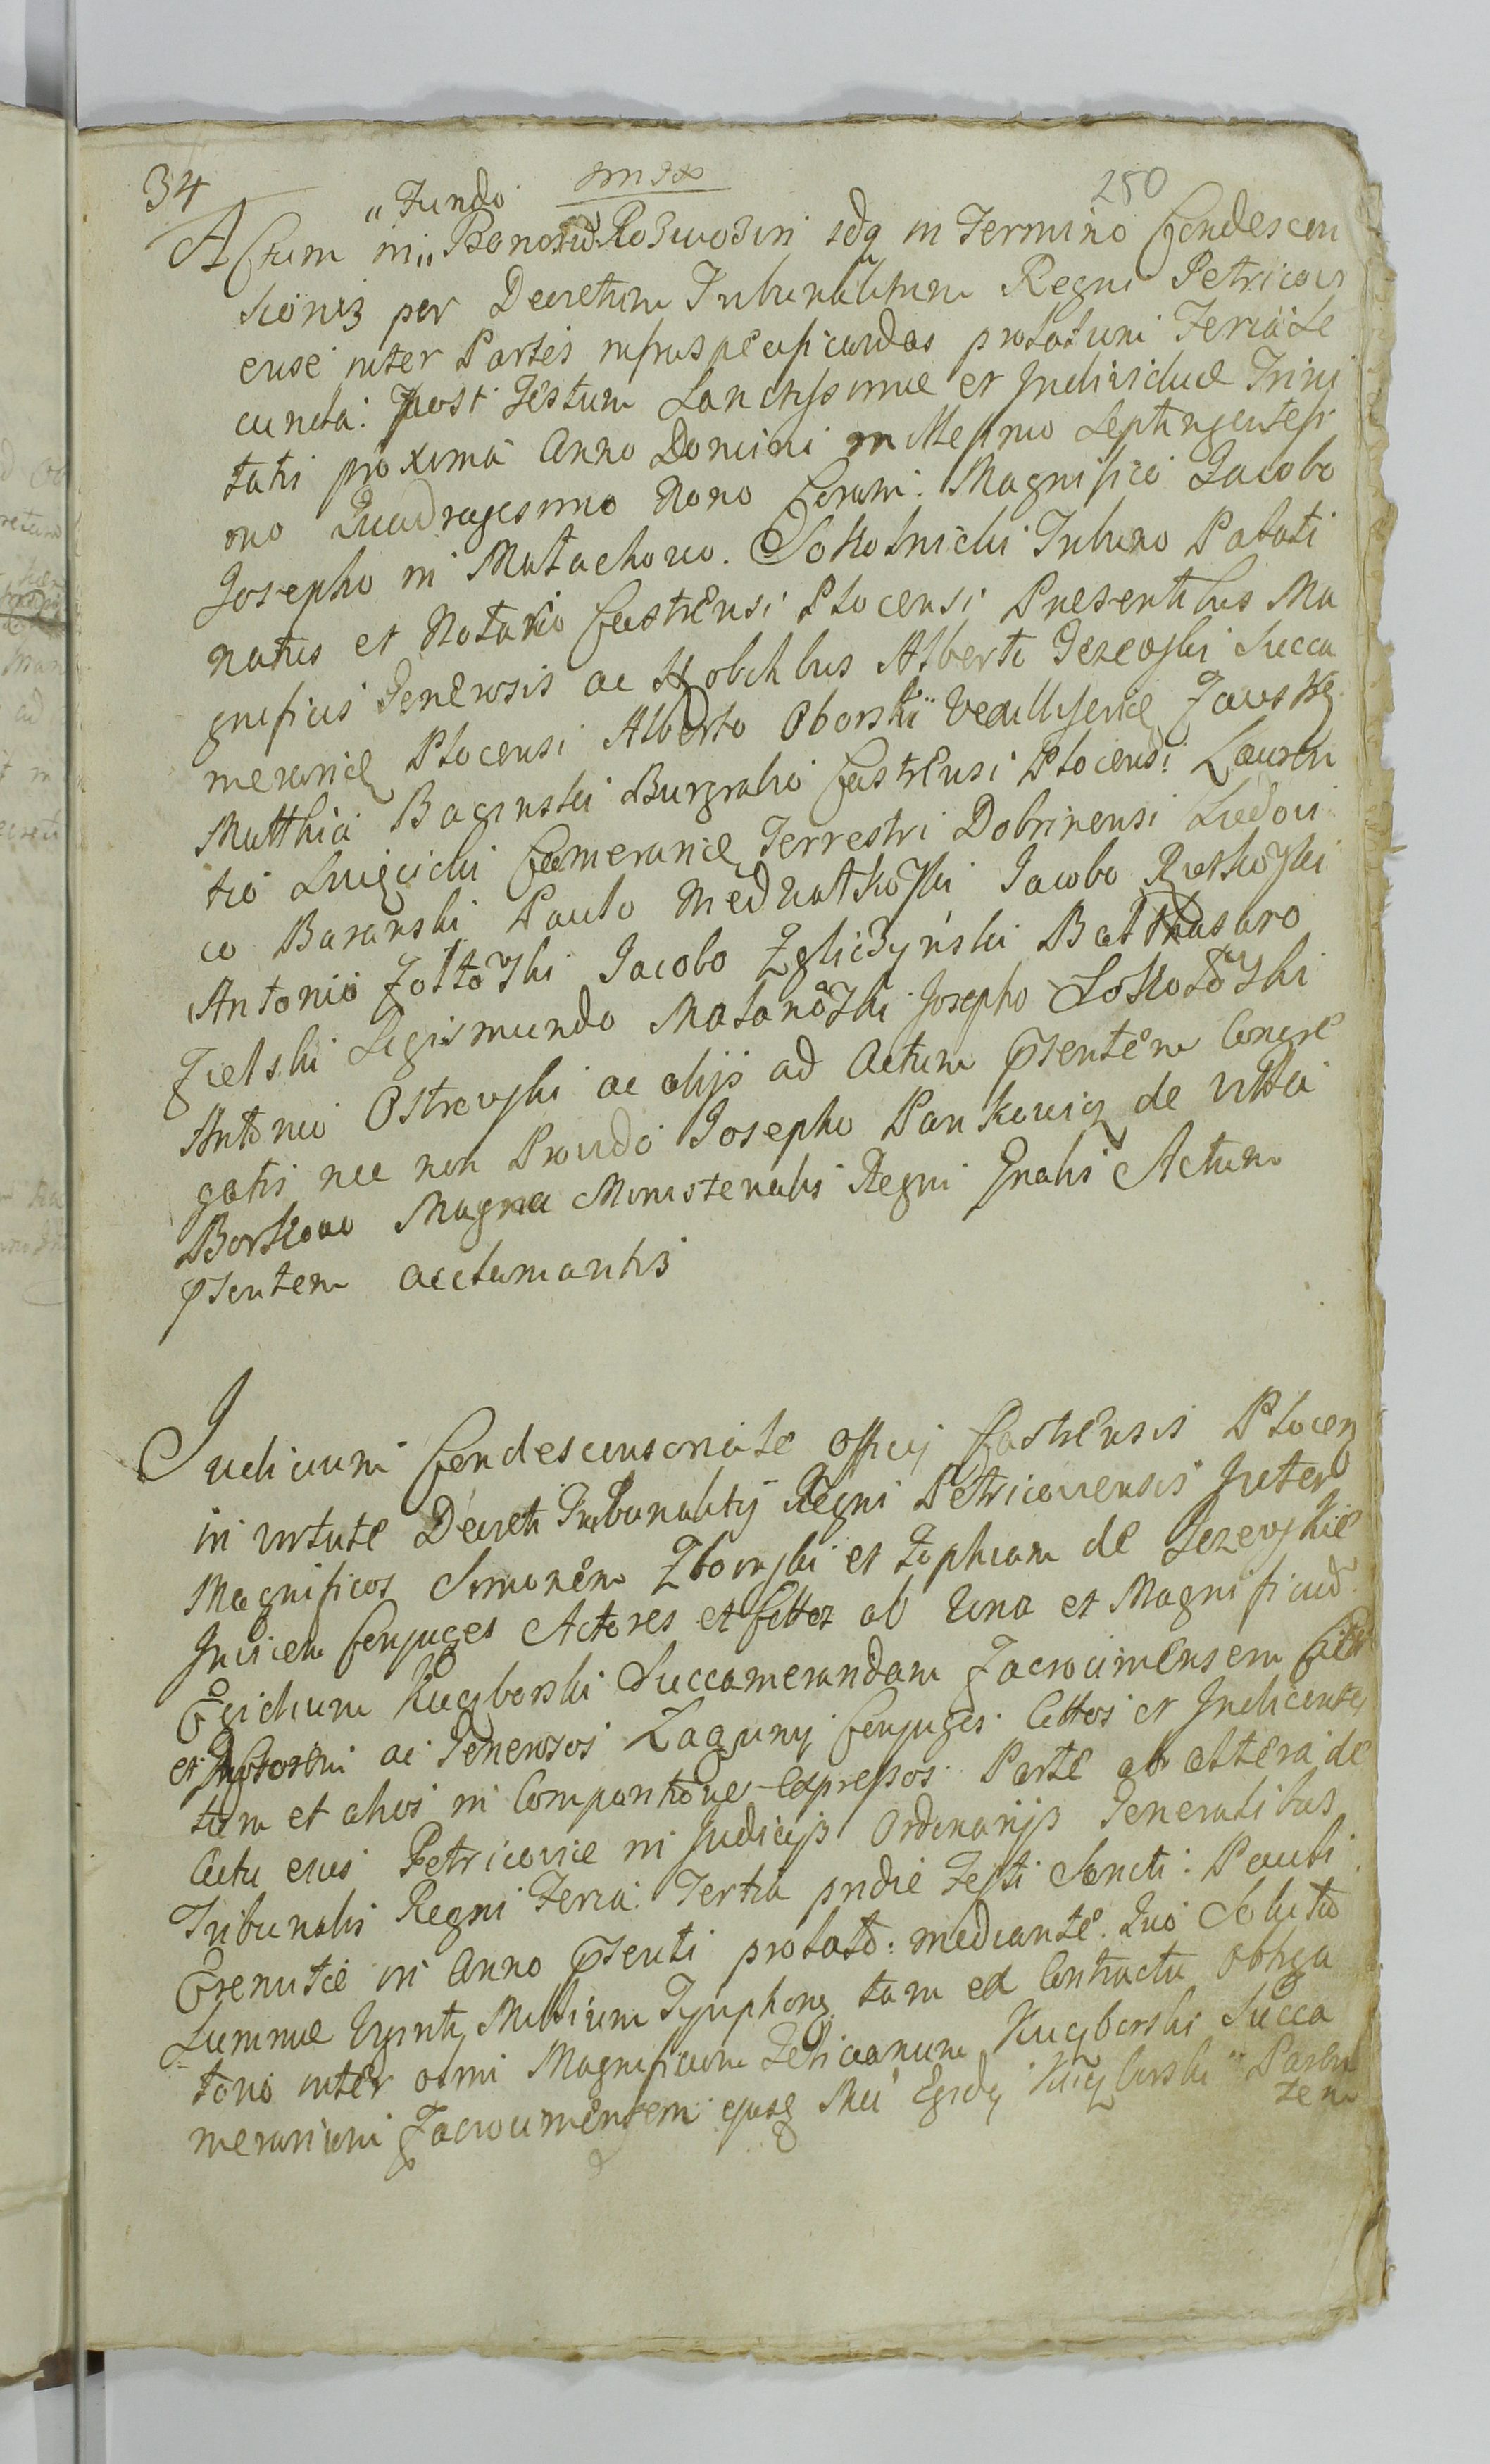 34
250
"Fundo
Actum in" Bonorũ Rozwozin sdq in Termino Condescen
sionis per Decretum Tribunalitium Regni Petricovi
ense inter Partes infraspecificandas prolatum Feria Se
cunda: post Festum Sanctissimae et Individuae Trini
tatis proxima Anno Domini Millesimo Septingentesi
mo Quadragesimo Nono Coram: Magnifico Jacobo
Josepho in Matachowo Sokolnicki Tribuno Palati
natus et Notario Castrensi Plocensi Presentibus Ma
gnificis Generosis ac Nobilibus Alberto Jezewski Succa
merario Plocensi Alberto Oborski Vexilliferide Zawskrz
Matthia Baginski Burgrabio Castrensi Plocensi Lauren
tio Camerarie Terrestri Dobrinensi Ludovi
co Baranski Paulo Jacobo Rutkowski
Antonio Zoltowski Jacobo Zgliczyński Balthasaro
Zielski Sigismundo Malanowski Josepho Sokolowski
Antonio Ostrowski ac alijs ad Actum pntem Congre
gatis nec non Provido Josepho Pankowicz de villa
Borkowo Magna Ministerialis Regni Gnalis Actum
psentem acclamantis
Judicium Condescensoriale Officij Castrensis Plocen
in virtute Decreti Tribunalitij Regni Petricoviensis Inter
Magnificos Simonem Zboinski et Sophiam de Jezewskie
Invicem Conjuges Actores et Cittos ab Una et Magnificũ
Egidium Kuczborski Succamerandam Zacrocimensem Citt
et ac Generosos Laguny Conjuges Cittos et Indicentes
tum et alios in Comparitione expressos Parte ab altera de
Actu eius Petricoviae in Judicijs Ordinarijs Generalibus
Tribunalis Regni Feria: Tertia pridie Festi Sancti: Pauli
Eremitae in Anno psenti prolato: mediante. Quo Soluto
Summae Viginti Millium Tymphonũ tam ex Contractu obliga
torio inter olim Magnificum Felicianum Kuczborski Succa
merarium Zacrocimensem ejusq Mci Egidij Kuczborski Paren
tem